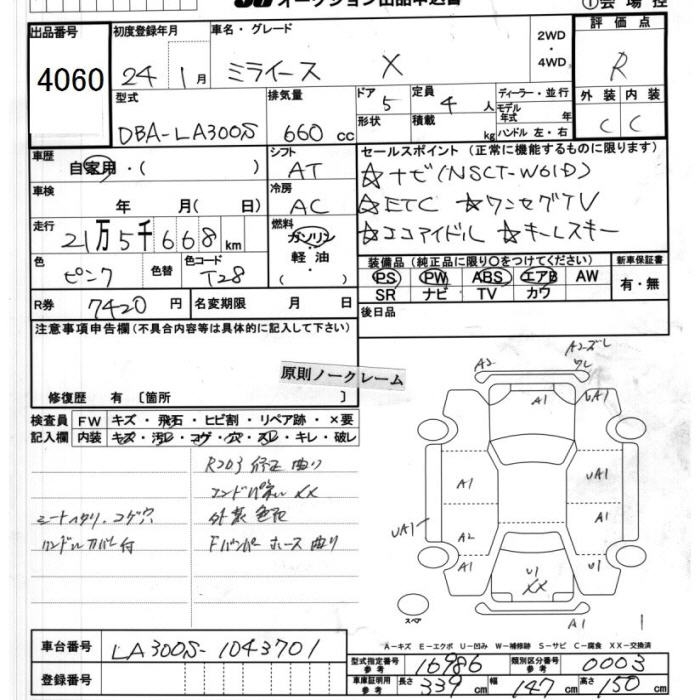 オークション出品申込書 ①会場控
出品番号 4060
初度登録年月 24 1月
車名・グレード ミライース X
2WD・4WD
評価点 R
型式 DBA-LA300S
排気量 660cc
ドア 5
形状
定員 4人
積載 kg
ディーラー・並行
モデル年式 年
ハンドル 左・右
外装 C 内装 C
車歴 自家用・( )
シフト AT
セールスポイント(正常に機能するものに限ります)
☆ナビ(NSCT-W61D)
☆ETC ☆ワンセグTV
☆エコアイドル ☆キーレスキー
車検 年 月( 日)
冷房 AC
走行 21万5千668km
燃料 ガソリン・軽油・( )
色 ピンク 色替 色コード T28
装備品(純正品に限り○をつけてください) 新車保証書
PS PW ABS エアB AW 有・無
SR ナビ TV カワ
R券 7420円 名変期限 月 日
後日品
注意事項申告欄(不具合内容等は具体的に記入して下さい)
原則ノークレーム
修復歴 有〔箇所 〕
検査員記入欄 FW キズ・飛石・ヒビ割・リペア跡・×要
内装 キズ・汚レ・コゲ・穴・スレ・キレ・破レ
シートヘタリ、コゲ穴
ハンドルカバー付
Rコア修正曲り
エンドパネルXX
外装色アセ
Fバンパーホース曲り
A2 A2ズレ ワレ
A1 UA1
A1 UA1
UA1 A2 A1
A1 U1 XX U1
スペア A1 1
A-キズ E-エクボ U-凹み W-補修跡 S-サビ C-腐食 XX-交換済
車台番号 LA300S-1043701
型式指定番号 参考 16986 類別区分番号 参考 0003
登録番号
車庫証明用 参考 長さ 339cm 幅 147cm 高さ 150cm